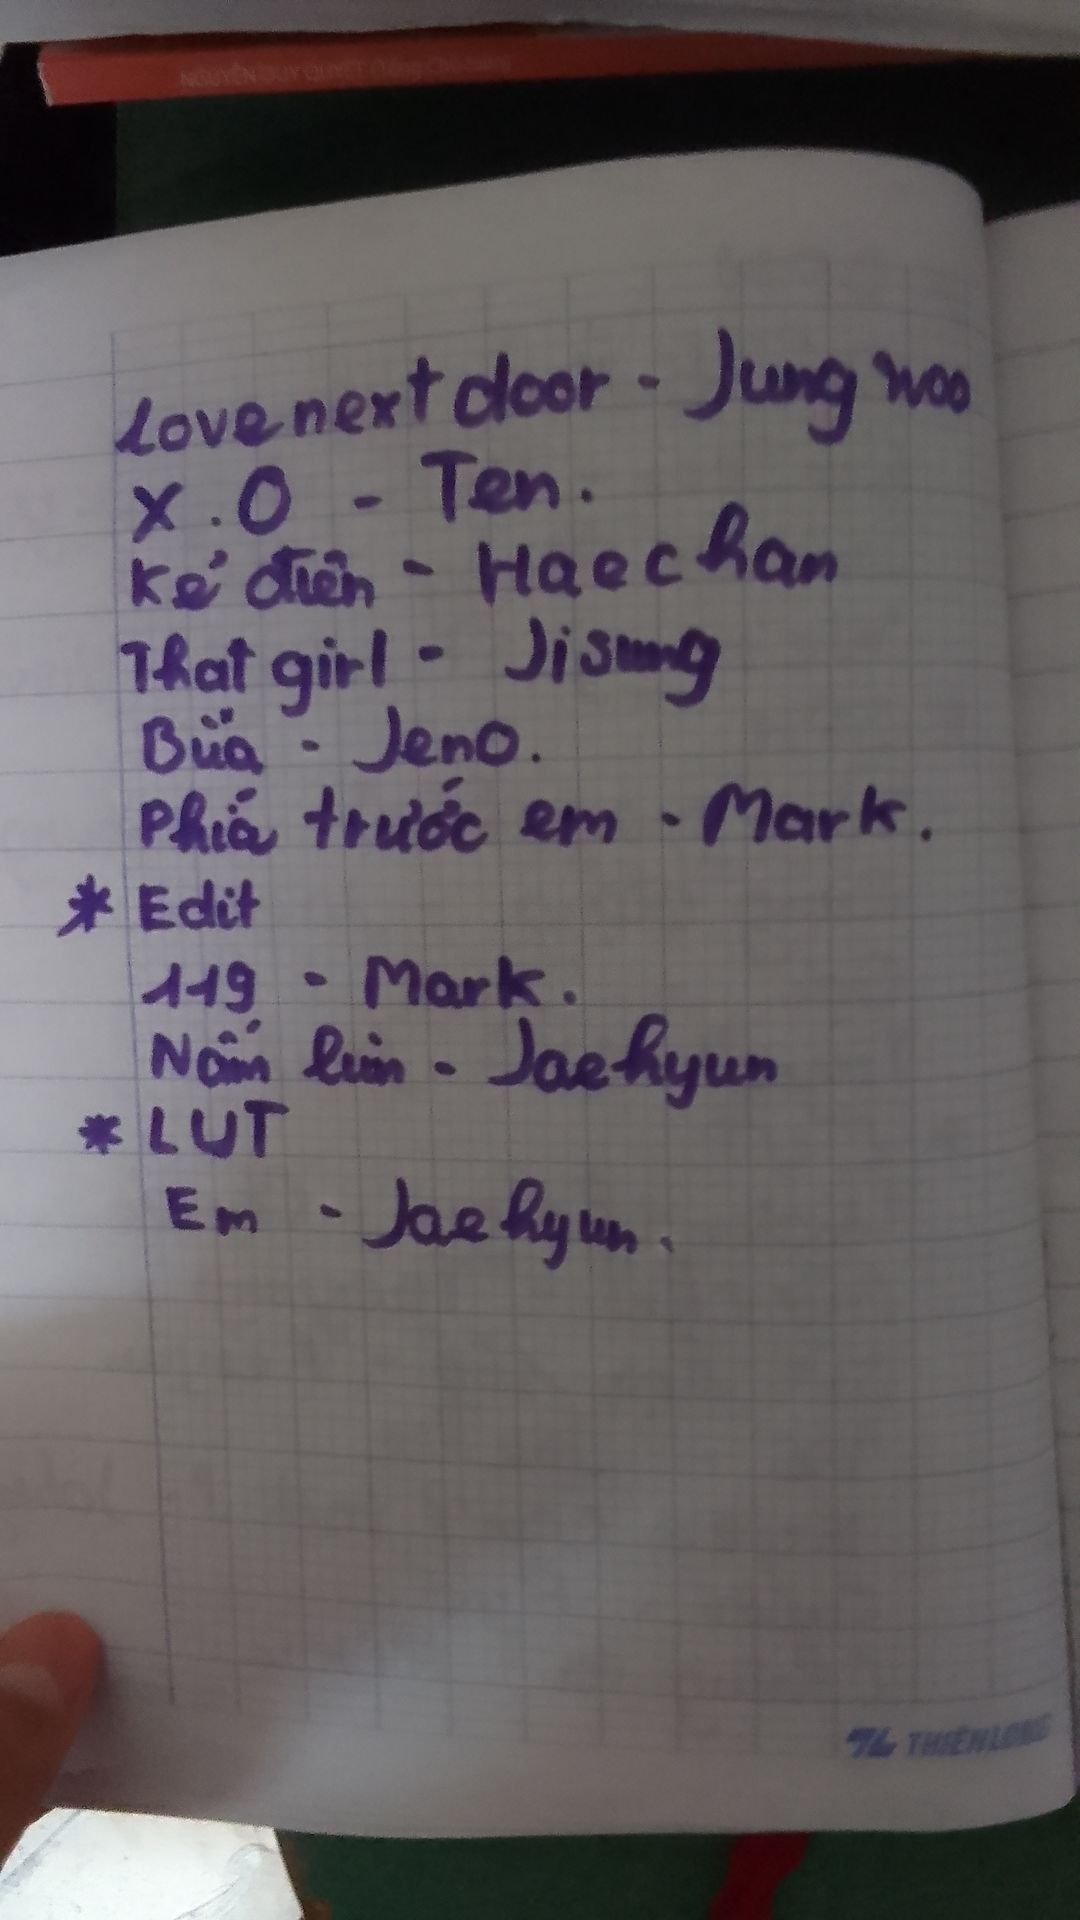 NGUYỄN DUY QUYẾT
Love next door - Jung woo
X.O - Ten.
Kẻ điên - Haechan
That girl - Jisung
Bữa - Jeno.
Phía trước em - Mark.
* Edit
119 - Mark.
Nấm lùn - Jaehyun
* LUT
Em - Jaehyun.
TL THIÊN LONG